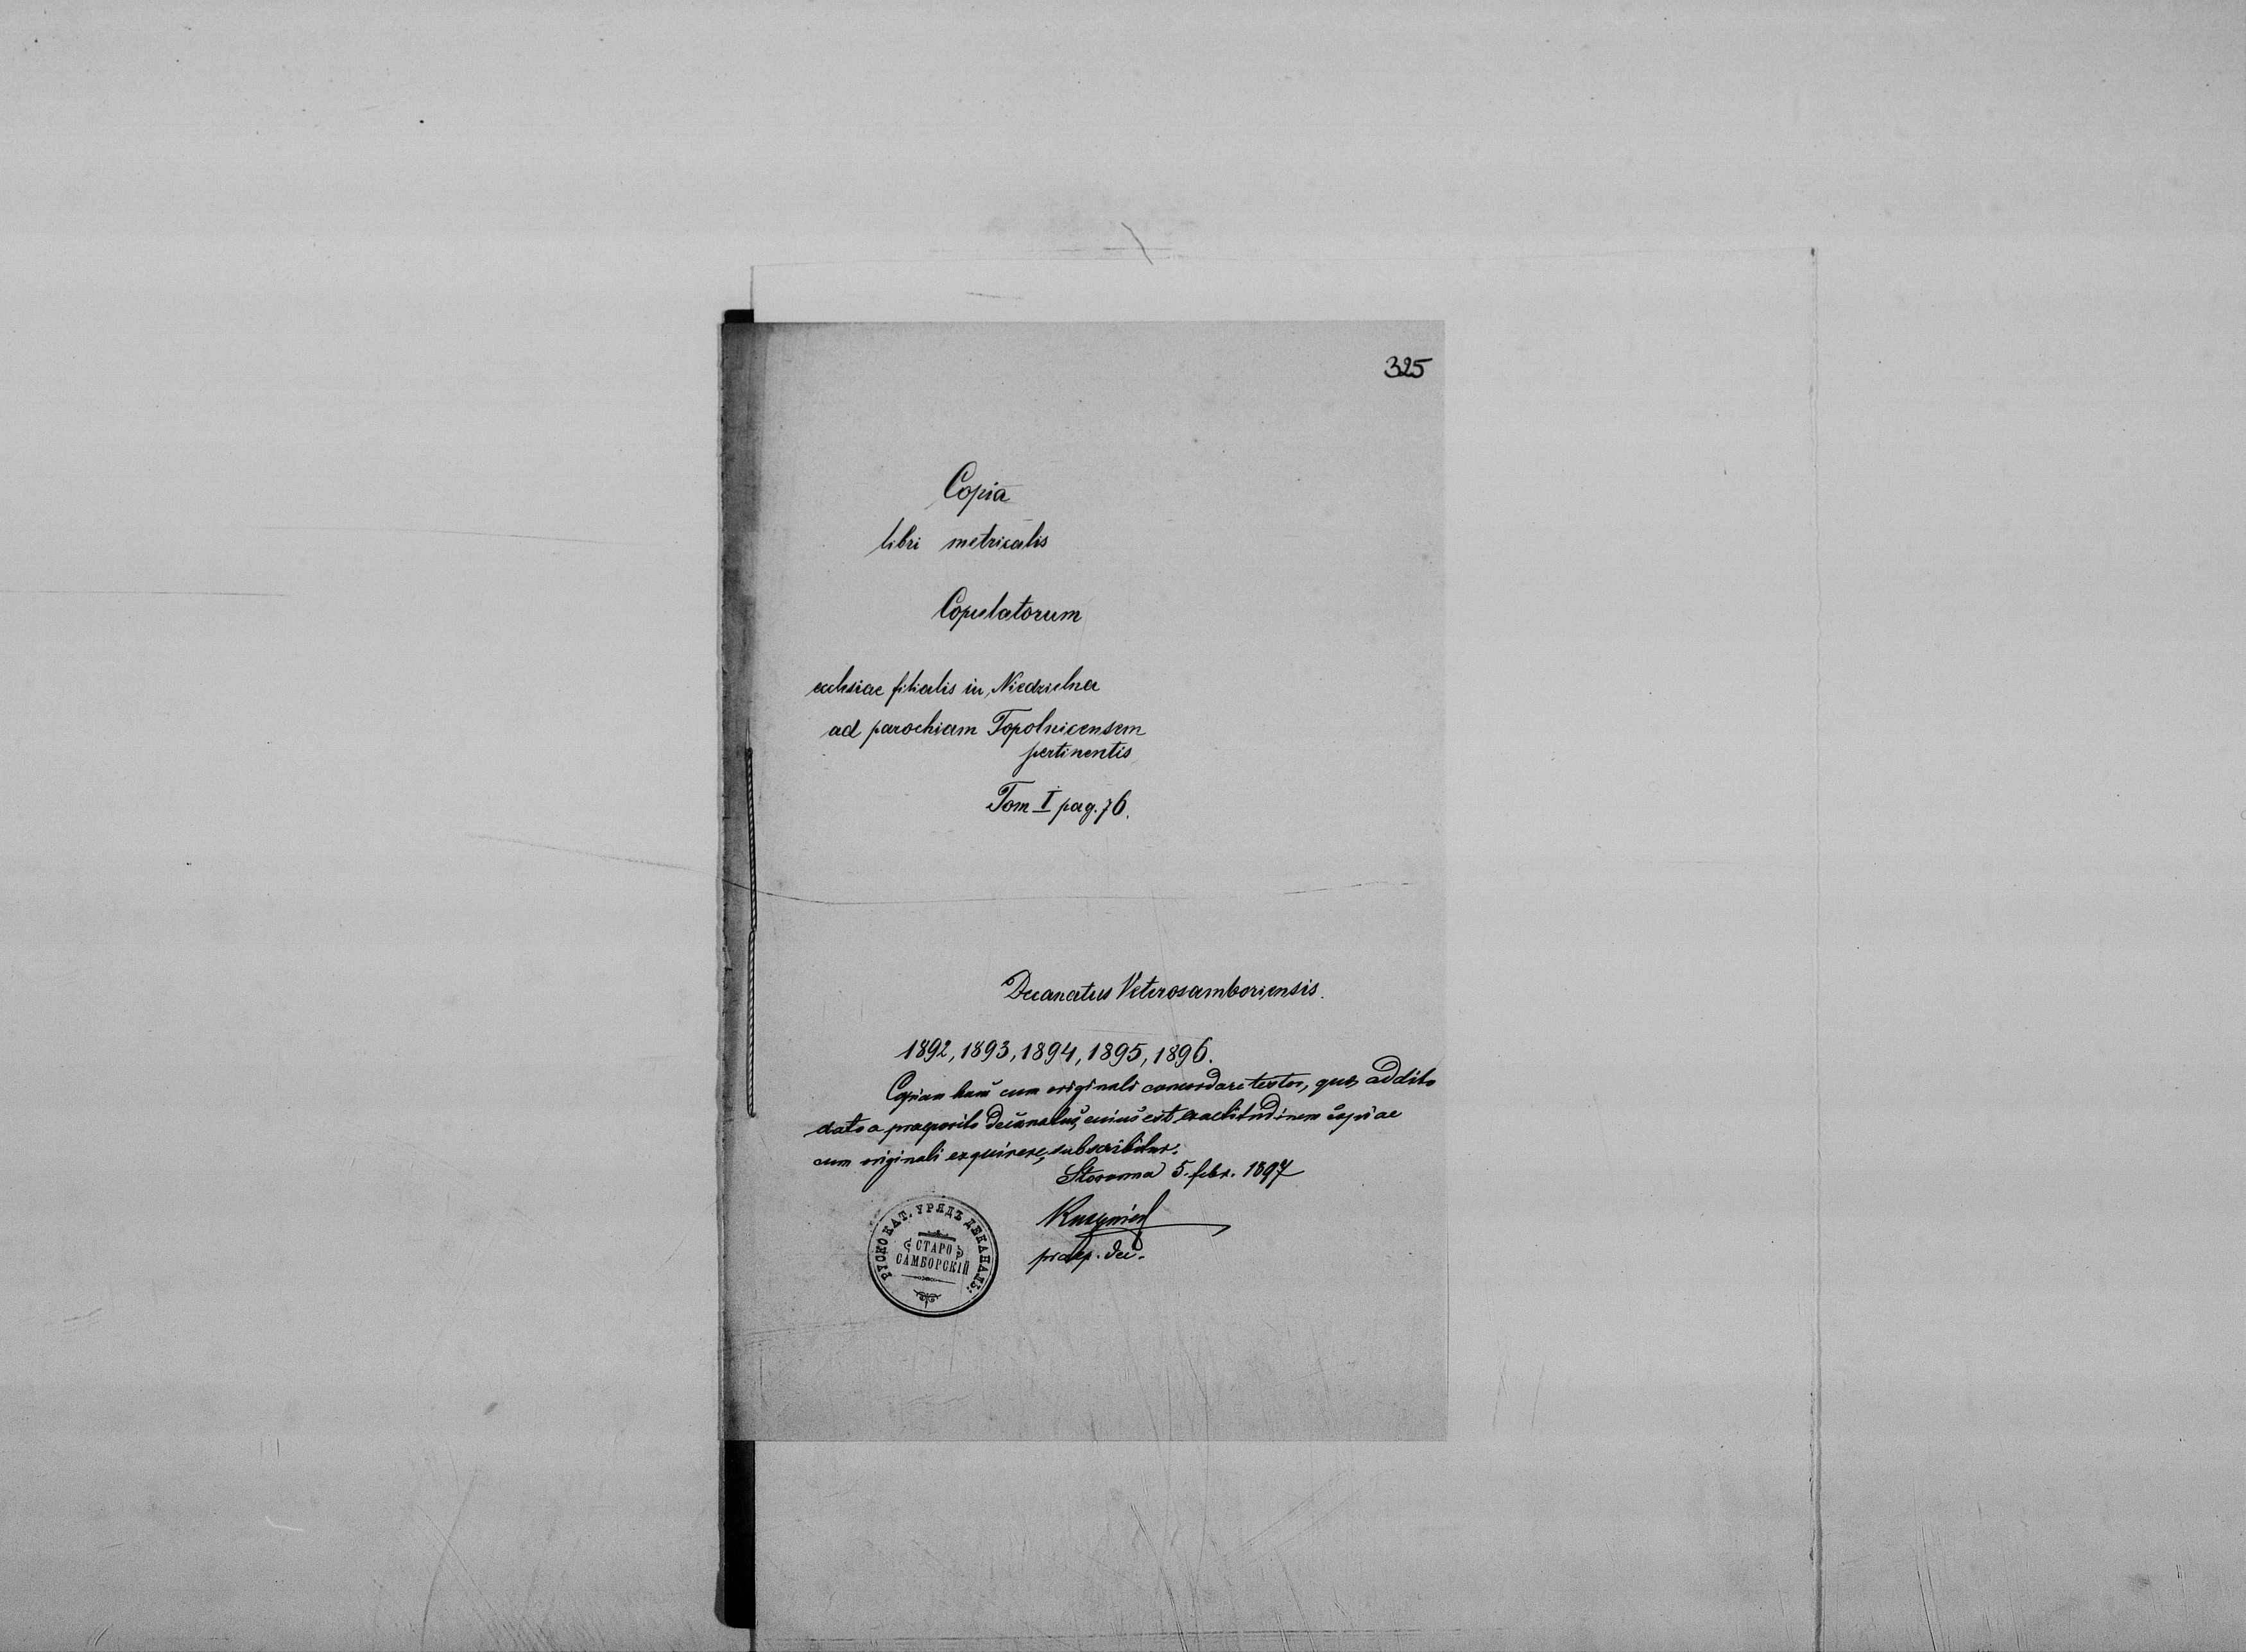 325
Copia
libri metricalis
Copulatorum
ecclesiae filialis in Niedzielna
ad parochiam Topolnicensem
pertinentis
Tom I pag. 76.
Decanatus Veterosamboriensis.
1892, 1893, 1894, 1895, 1896.
Copiam hanc cum originali concordare testor, quo addito
dato a praeposito decanatus, cuius est exactitudinem copiae
cum originali exquirere, subscribitur.
5. febr. 1897
praep. dec.
РУСКО КАТ. УРЯДЪ ДЕКАНАЛ:
СТАРО
САМБОРСКІЙ